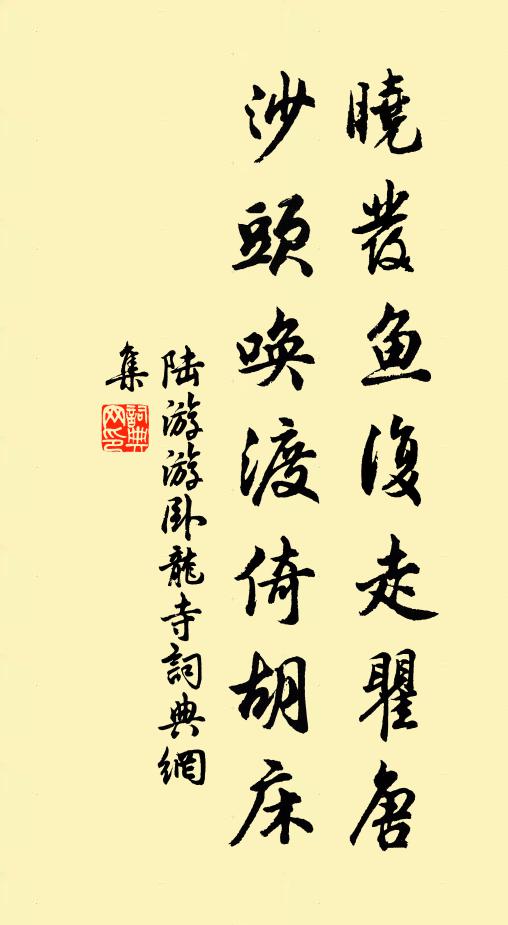 曉發魚復走瞿唐
沙頭喚渡倚胡床
陆游游卧龍寺詞典網
集
詞典網印